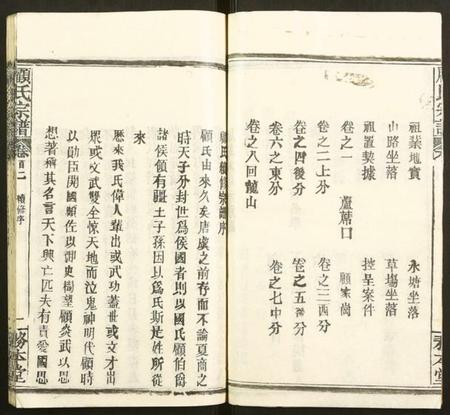 顧氏宗譜
卷
務本堂
祖塋地實
永塘坐落
山路坐落
草塲坐落
祖置契據
控呈案件
卷之一
蘆蓆口
顧家崗
卷之二上分
卷之三西分
卷之四後分
卷之五前分
卷六之東分
卷之七中分
卷之八回龍山
顧氏續修宗譜序
顧氏由來久矣唐虞之前存而不論夏商之
時天子分封世爲侯國者則以國氏顧伯爵
諸侯領有疆土子孫因以爲氏斯是姓所從
來
歷來我氏偉人輩出或武功蓋世或文才出
眾或文武雙全惊天地而泣鬼神明代顧時
以勛臣開國顧佐以御史樹望顧炎武以思
想著稱其名言天下興亡匹夫有責愛國思
顧氏宗譜
卷首二
續修序
一
務本堂